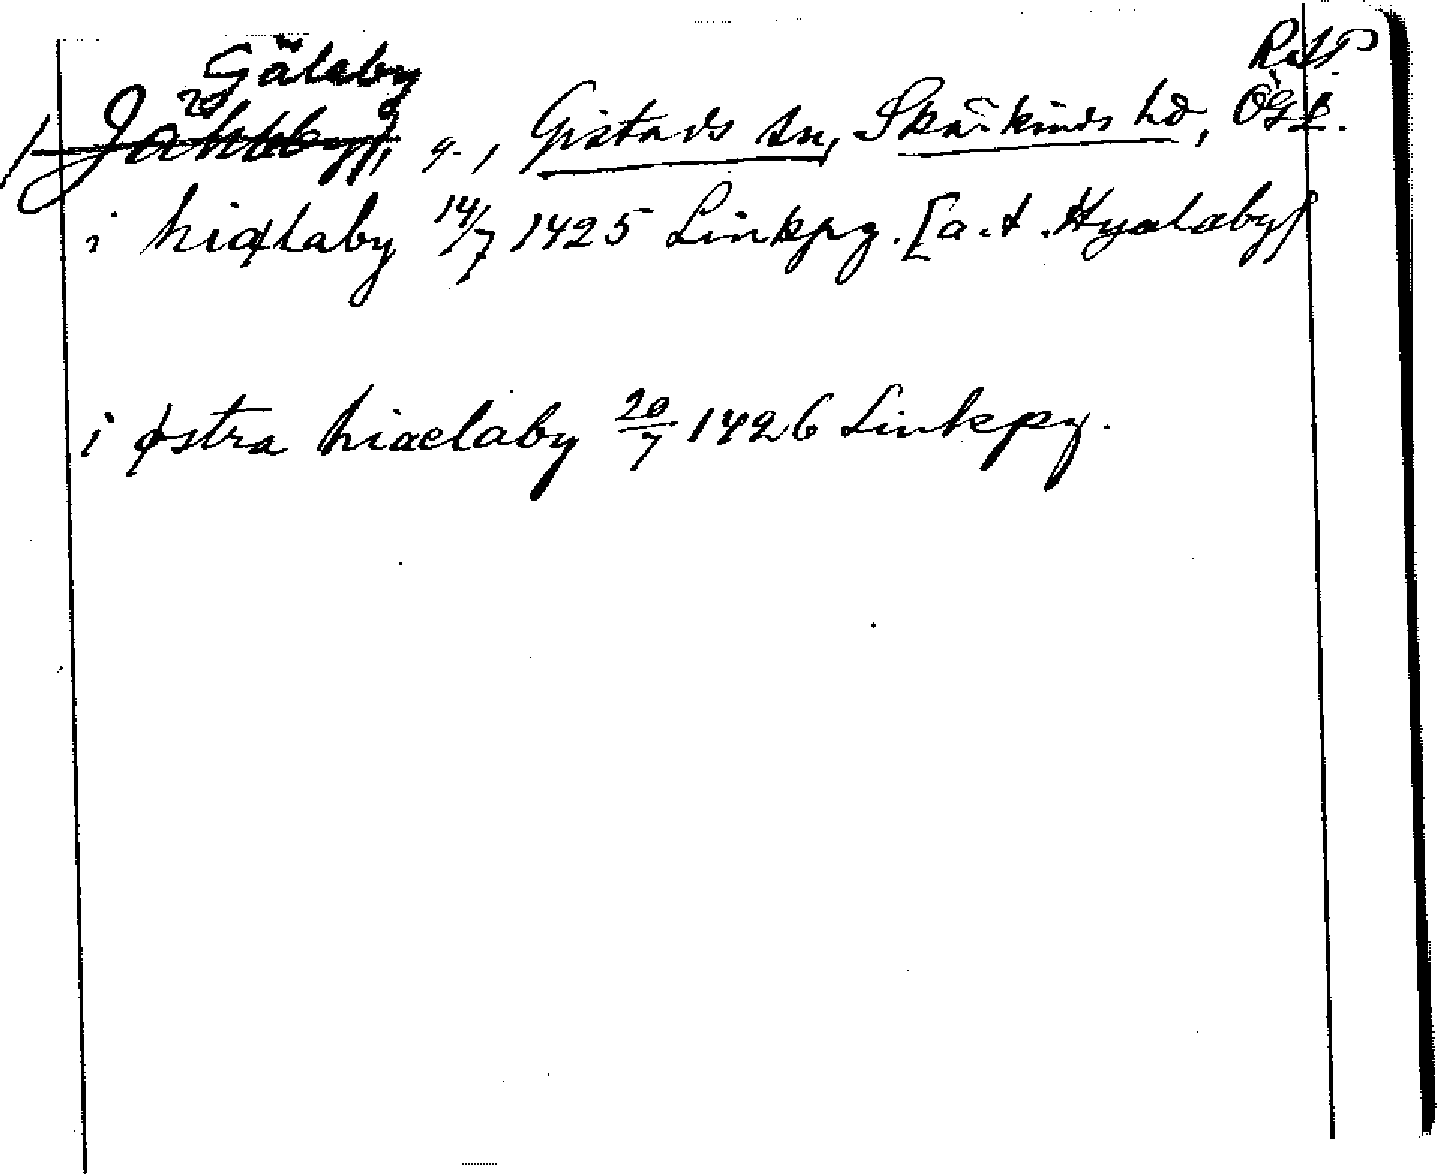 Gälaby RAP
g., Gistads sn, Skärkinds hd, ÖGL.
i hiælaby 14/7 1425 Linkpg. [a. t. Hyalaby]
i østra hiaelaby 20/7 1426 Linkpg.